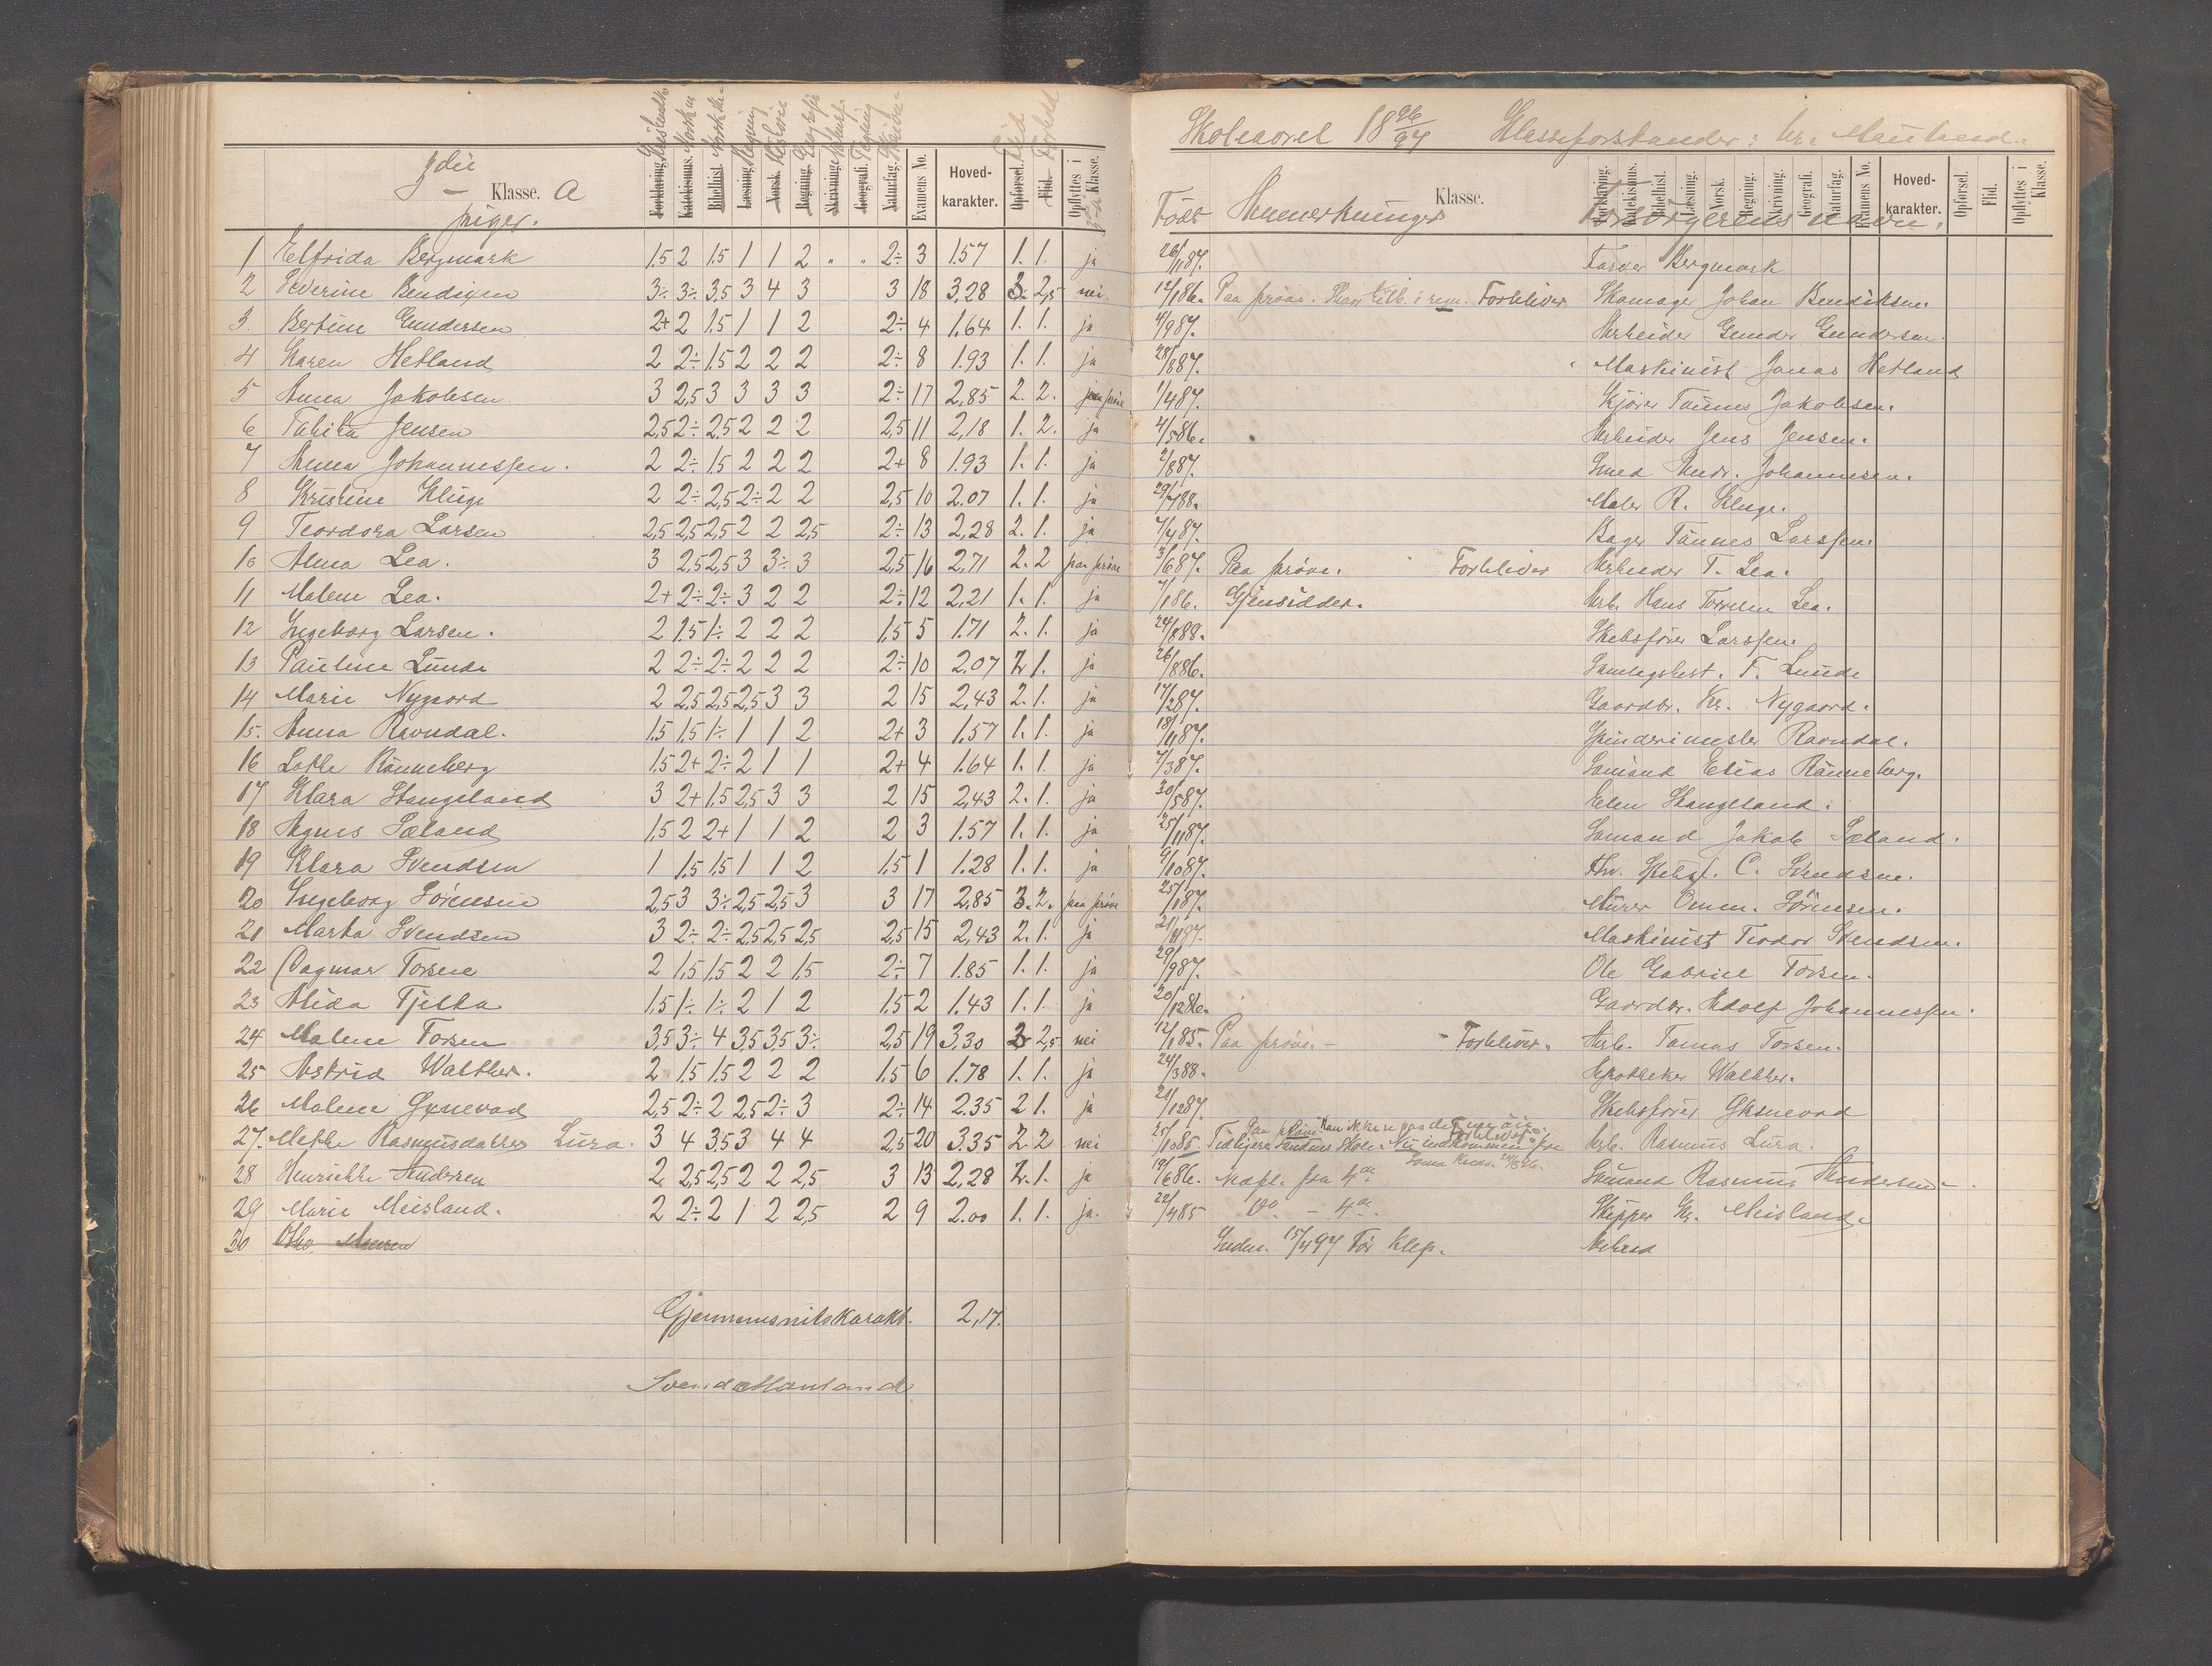 3die Klasse. A
piger.
Forklaring. Katekismus. Bibelhist. Læsning. Norsk. Regning. Skrivning. Geografi. Naturfag. Examens No. Hoved-karakter. Opførsel. Flid. Opflyttes i Klasse.
1 Elfrida Bergmark 1.5 2 1.5 1 1 2 " " 2÷ 3 1.57 1. 1. ja
2 Severine Bendixen 3÷ 3÷ 3,5 3 4 3 3 18 3,28 3. 2,5 nei.
3. Bertine Gundersen 2+ 2 1.5 1 1 2 2÷ 4 1.64 1. 1. ja
4 Karen Hetland 2 2÷ 1.5 2 2 2 2÷ 8 1.93 1. 1. ja
5 Anna Jakobsen 3 2,5 3 3 3 3 2÷ 17 2,85 2. 2. paa prøve
6 Tabita Jensen 2,5 2÷ 2,5 2 2 2 2,5 11 2,18 1. 2. ja
7 Anna Johannessen. 2 2÷ 1.5 2 2 2 2+ 8 1.93 1. 1. ja
8 Kristine Kluge 2 2÷ 2,5 2÷ 2 2 2,5 10 2.07 1. 1. ja
9 Teordora Larsen 2,5 2,5 2,5 2 2 2,5 2÷ 13 2,28 2. 1. ja
10 Anna Lea. 3 2,5 2,5 3 3÷ 3 2,5 16 2,71 2. 2 paa prøve
11 Malene Lea. 2+ 2÷ 2÷ 3 2 2 2÷ 12 2,21 1. 1. ja
12 Ingeborg Larsen. 2 1.5 1÷ 2 2 2 1.5 5 1.71 2. 1. ja
13 Pauline Lunde 2 2÷ 2÷ 2 2 2 2÷ 10 2.07 2. 1. ja
14 Marie Nygaard 2 2,5 2,5 2,5 3 3 2 15 2,43 2. 1. ja
15. Anna Ravndal. 1.5 1.5 1÷ 1 1 2 2+ 3 1.57 1. 1. ja
16 Lotte Rønneberg 1.5 2+ 2÷ 2 1 1 2+ 4 1.64 1. 1. ja
17 Klara Stangeland 3 2+ 1.5 2,5 3 3 2 15 2,43 2. 1. ja
18 Agnes Sæland 1.5 2 2+ 1 1 2 2 3 1.57 1. 1. ja
19 Klara Svendsen 1 1.5 1.5 1 1 2 1.5 1 1.28 1. 1. ja
20 Ingeborg Sørensen 2,5 3 3÷ 2,5 2,5 3 3 17 2,85 3. 2. paa prøve
21 Marta Svendsen 3 2÷ 2÷ 2,5 2,5 2,5 2,5 15 2,43 2. 1. ja
22 Dagmar Torsen 2 1.5 1.5 2 2 1.5 2÷ 7 1.85 1. 1. ja
23 Alida Tjelta 1.5 1÷ 1÷ 2 1 2 1.5 2 1.43 1. 1. ja
24 Malene Torsen 3,5 3÷ 4 3,5 3,5 3÷ 2,5 19 3,30 3 2,5 nei
25 Astrid Walther. 2 1.5 1.5 2 2 2 1.5 6 1.78 1. 1. ja
26 Malene Gxnevad 2,5 2÷ 2 2,5 2÷ 3 2÷ 14 2.35 2 1. ja
27. Mette Rasmusdatter Lura. 3 4 3,5 3 4 4 2,5 20 3.35 2 2 nei
28 Henriette Andersen 2 2,5 2,5 2 2 2,5 3 13 2,28 2. 1. ja
29 Marie Meisland. 2 2÷ 2 1 2 2,5 2 9 2.00 1. 1. ja.
30
Gjennemsnitskarakt. 2,17.
Svend Mauland
Skoleaaret 18 96/97 Klasseforstander: hr. Mauland.
Forklaring. Katekismus. Bibelhist. Læsning. Norsk. Regning. Skrivning. Geografi. Naturfag. Examens No. Hoved-karakter. Opførsel. Flid. Opflyttes i Klasse.
Født Anmerkninger Klasse. Forsørgerens navn.
26/11 87. Farver Bergmark
12/1 86. Paa prøve. Forbliver Skomager Johan Bendiksen.
4/9 87. Arbeider Gunder Gundersen.
28/8 87. Maskinist Jonas Hetland
1/4 87. Kjører Tønnes Jakobsen.
4/5 86. Arbeider Jens Jensen.
2/8 87. Smed Andr. Johannesen.
29/4 88. Maler R. Kluge.
7/4 87. Bager Tønnes Larssen.
3/6 87. Paa prøve. Forbliver Arbeider T. Lea.
7/1 86. Gjensidder. Arb. Hans Torresen Lea.
24/8 88. Skibsfører Larssen.
26/8 86. Samlagsbest. T. Lunde
17/2 87. Gaardbr. Kr. Nygaard.
18/11 87. Spinderimester Ravndal.
7/3 87. Sømand Elias Rønneberg.
30/5 87. Elen Stangeland.
25/11 87. Sømand Jakob Sæland.
9/10 87. C. Svendsen.
25/1 87. Murer Omm. Sørensen.
21/11 87. Maskinist Teodor Svendsen.
29/9 87. Ole Gabriel Torsen.
20/12 86. Gaardbr. Adolf Johannessen.
12/1 85. Paa prøve. – Forbliver. Arb. Tomas Torsen.
24/3 88. Apotheker Walther.
21/12 87. Skibsfører Gksnevad
25/10 85 Tidligere Sandnes Skole. Nu indkommen fra Arb. Rasmus Lura.
19/6 86. Opfl. fra 4de Sømand Rasmus Andersen.
22/4 85 Do. – 4de. Skipper Kr. Meisland.
Indm. 15/4 97 Før Klep. Arbeid